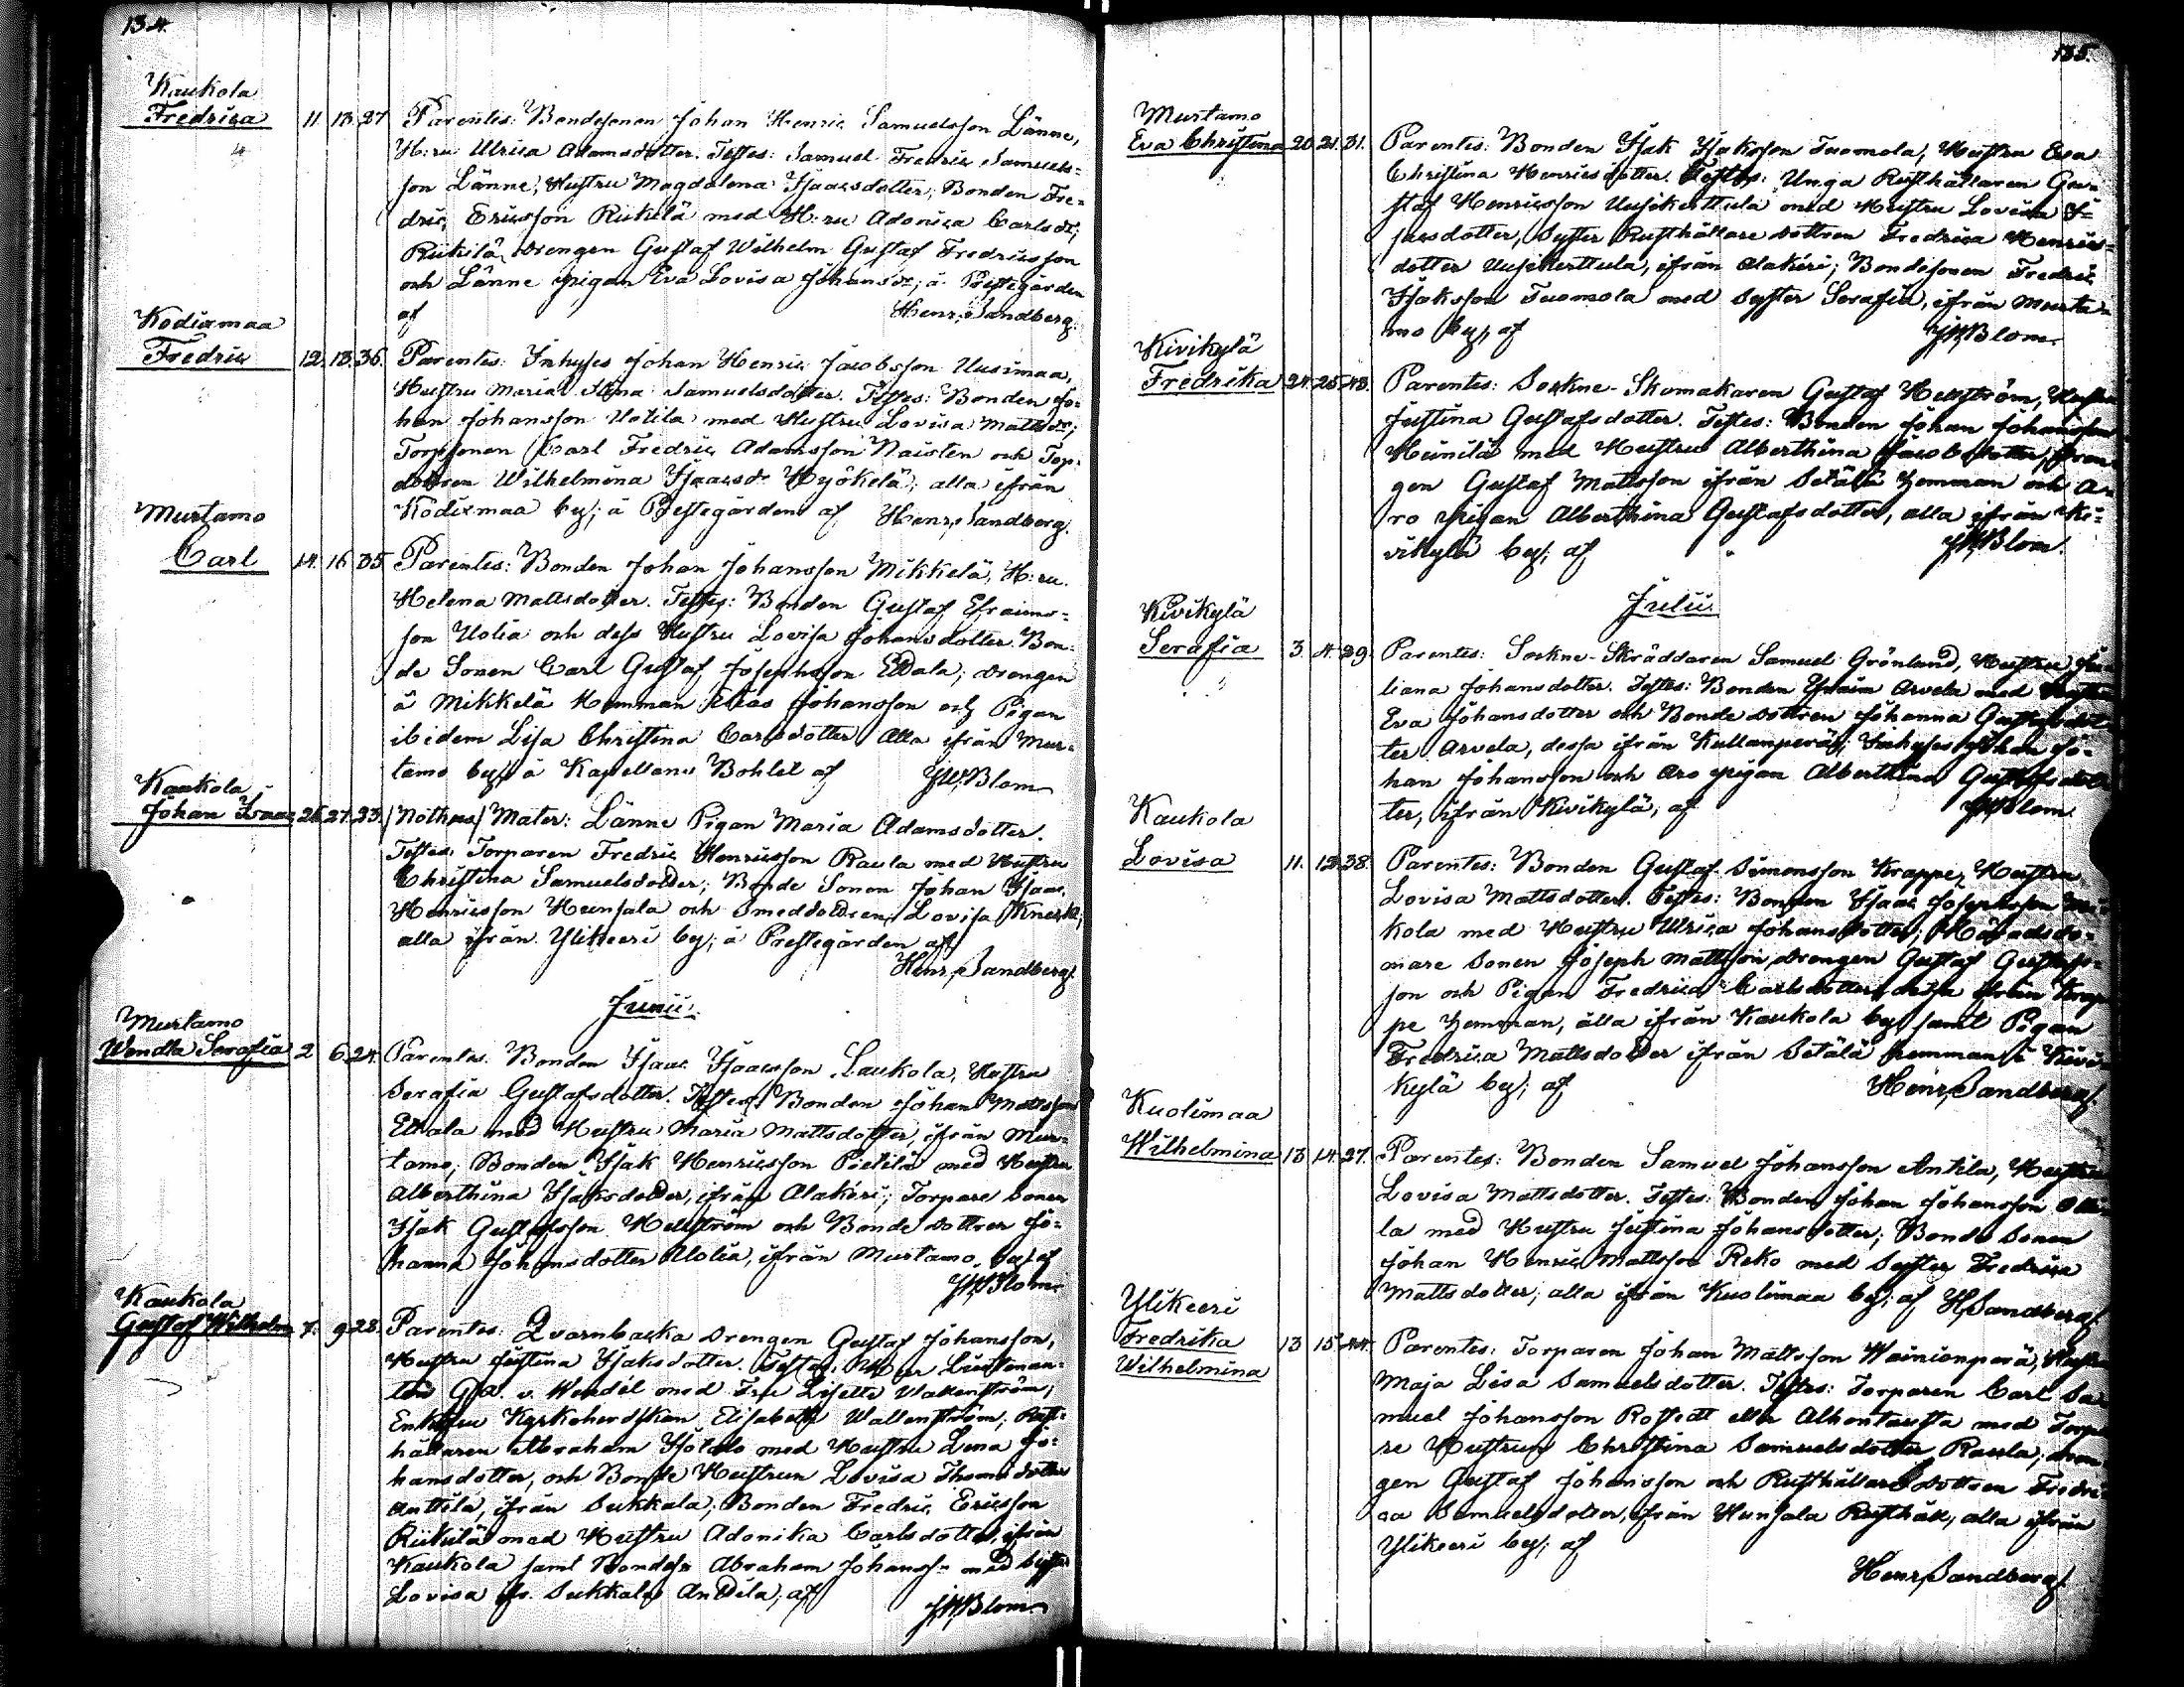 134.
Kaukola
Fredrica 11. 13. 27. Parentes: Bondesonen Johan Henric Samuelsson Länne,
H:ru Ulrica Adamsdotter. Testes: Samuel Fredric Samuels=
son Länne, Hustru Magdalena Isaacsdotter; Bonden Fre=
dric Ericsson Rickilä med H:ru Adonica Carlsdr;
Rickilä drengen Gustaf Wilhelm Gustaf Fredricsson
och Länne pigan Eva Lovisa Johansdr; å Prestegården
af Henr. Sandberg.
Kodixmaa
Fredric 12. 13. 36. Parentes: Inhyses Johan Henric Jacobsson Uusimaa,
Hustru Maria Stina Samuelsdotter. Testes: Bonden Jo=
han Johansson Uotila med Hustru Lovisa Mattsdr;
Torpsonen Carl Fredric Adamsson Naisten och Torp-
dottren Wilhelmina Isaacsdr Hyökelä; alla ifrån
Kodixmaa by; å Prestegården af Henr. Sandberg.
Murtamo
Carl 14. 16. 35. Parentes: Bonden Johan Johansson Mikkelä, H:ru
Helena Mattsdotter. Testes: Bonden Gustaf Efraims=
son Uolia och dess Hustru Lovisa Johansdotter. Bon=
de Sonen Carl Gustaf Josephsson Ettala; drengen
å Mikkelä Hemman Elias Johansson och Pigan
ibidem Lisa Christina Carlsdotter Alla ifrån Mur=
tamo by; å Kapellans Bohlet af JW Blom
Kaukola
Johan Isaac 25. 27. 23. (Nothus) Mater: Länne Pigan Maria Adamsdotter.
Testes: Torparen Fredric Henricsson Raula med Hustru
Christina Samuelsdotter; Bonde Sonen Johan Isaac
Henricsson Hunsala och Smeddottren Lovisa Knerk;
alla ifrån Ylikeeri by; å Prestegården af
Henr. Sandberg.
Junii.
Murtamo
Wendla Serafia 2. 6. 24. Parentes: Bonden Isaac Isaacsson Laukola, Hustru
Serafia Gustafsdotter. Testes: Bonden Johan Mattsson
Ettala med Hustru Maria Mattsdotter, ifrån Mur=
tamo; Bonden Isak Henricsson Pietilä med Hustru
Alberthina Isaksdotter, ifrån Alakeri; Torpare Sonen
Isak Gustafsson Hellström och Bonde dottren Jo=
hanna Johansdotter Uolia, ifrån Murtamo by; af
JW Blom
Kaukola
Gustaf Wilhelm 7. 9. 28. Parentes: Qvarnbacka drengen Gustaf Johansson,
Hustru Justina Isaksdotter. Testes: Under Lieutenan-
ten G. A. v. Wendel med Fru Lisette Wallenström;
Enkefru Kyrkoherdskan Elisabeth Wallenström; Rust=
hållaren Abraham Isotalo med Hustru Lena Jo=
hansdotter, och Bonde Hustrun Lovisa Thomsdotter
Anttila, ifrån Sukkala; Bonden Fredric Ericsson
Rickilä med Hustru Adonika Carlsdotter, ifrån
Kaukola samt Bondes. Abraham Johanss:n med Syster
Lovisa ifr. Sukkala Anttila; af
JW Blom
135.
Murtamo
Eva Christina 20. 21. 31. Parentes: Bonden Isak Isaksson Tuomola, Hustru Eva
Christina Henricsdotter. Testes: Unga Rusthållaren Gus=
taf Henricsson Uusikerttula med Hustru Lovisa I=
sacsdotter, Syster Rusthållare dottren Fredrica Henrics=
dotter Uusikerttula, ifrån Alakeri; Bondesonen Fredric
Isaksson Tuomola med Syster Serafia, ifrån Murta=
mo by; af JW Blom
Kivikylä
Fredrika 24. 25. 43. Parentes: Sockne-Skomakaren Gustaf Hellström, Hustru
Justina Gustafsdotter. Testes: Bonden Johan Johansson
Heinilä med Hustru Alberthina Jacobsdotter, dren=
gen Gustaf Mattsson ifrån Setälä hemman och A=
ro pigan Alberthina Gustafsdotter, alla ifrån Ki=
vikylä by; af JW Blom.
Julii.
Kivikylä
Serafia 3. 4. 29. Parentes: Sockne-Skräddaren Samuel Grönlund, Hustru Ju=
liana Johansdotter. Testes: Bonden Efraim Arvela med Hustru
Eva Johansdotter och Bonde dottren Johanna Gustafsdot=
ter Arvela, dessa ifrån Kullanperä; Inhyses Johan Jo=
han Johansson och Aro pigan Alberthina Gustafsdot=
ter, ifrån Kivikylä; af JW Blom
Kaukola
Lovisa 11. 13. 38. Parentes: Bonden Gustaf Simonsson Krappe, Hustru
Lovisa Mattsdotter. Testes: Bonden Isaac Josephsson
kola med Hustru Ulrica Johansdotter; Häradsdo=
mare Sonen Joseph Mattsson, drengen Gustaf Gustafs=
son och Pigan Fredrica Carlsdotter, dessa ifrån Krap=
pe hemman, alla ifrån Kaukola by samt Pigan
Fredrica Mattsdotter ifrån Setälä hemman i Kivi=
kylä by; af Henr. Sandberg.
Kuolimaa
Wilhelmina 13. 14. 27. Parentes: Bonden Samuel Johansson Antila, Hustru
Lovisa Mattsdotter. Testes: Bonden Johan Johansson Olli=
la med Hustru Justina Johansdotter; Bonde Sonen
Johan Henric Mattsson Reko med Syster Fredrica
Mattsdotter; alla ifrån Kuolimaa by; af H. Sandberg.
Ylikeeri
Fredrika
Wilhelmina 13. 15. 44. Parentes: Torparen Johan Mattsson Wainionperä, Hustru
Maja Lisa Samuelsdotter. Testes: Torparen Carl Sa=
muel Johansson Rostedt eller Alhontausta med Torpa=
re Hustrun Christina Samuelsdotter Raula; dren=
gen Gustaf Johansson och Rusthållare dottren Fredri=
ca Samuelsdotter, ifrån Hunsala Rusthåll, alla ifrån
Ylikeeri by; af
Henr. Sandberg.